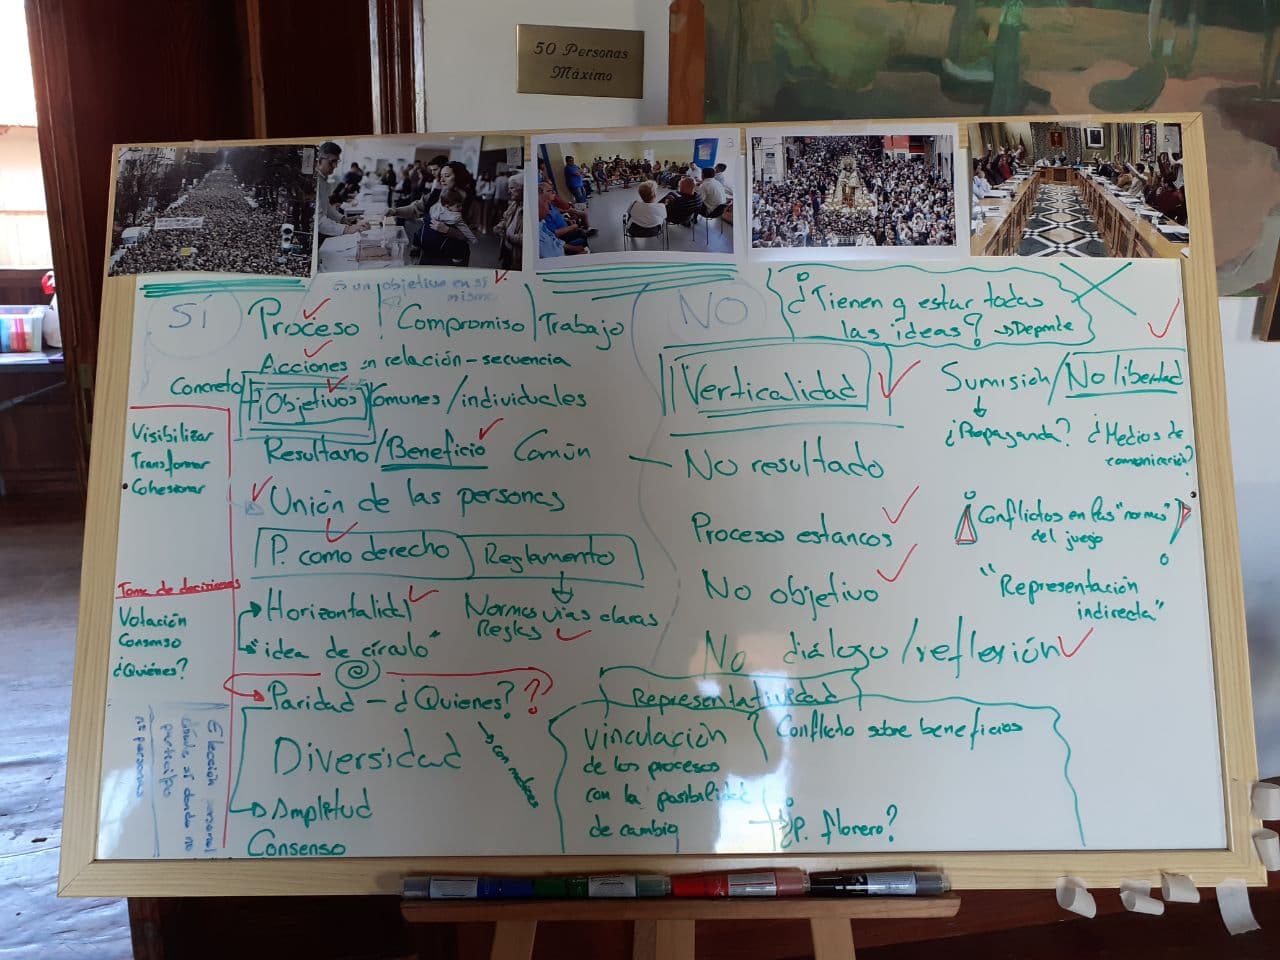 50 Personas
Máximo
3
5
SÍ
es un objetivo en sí
mismo
Proceso / Compromiso / Trabajo
Acciones en relación - secuencia
Concreto
Objetivos comunes / individuales
Resultano / Beneficio Común
Unión de las personas
P. como derecho Reglamento
Horizontalidad
Normas vías claras
Reglas
"idea de círculo"
Paridad - ¿Quienes? ?
con matices
Diversidad
Amplitud
Consenso
Visibilizar
Transformar
Cohesionar
Toma de decisiones
Votación
Consenso
¿Quiénes?
Elección personal
dónde sí donde no
participo
no personas
NO
¿Tienen q estar todas
las ideas? → Depende
Verticalidad
Sumisión / No libertad
¿Propaganda? ¿Medios de
comunicación?
No resultado
Procesos estancos
¡Conflictos en las "normas"
del juego!
No objetivo
"Representación
indirecta"
No diálogo / reflexión
Representatividad
vinculación
de los procesos
con la posibilidad
de cambio
Conflicto sobre beneficios
¿P. florero?